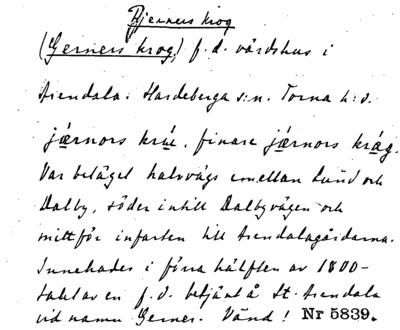 Gjerners krog
(Gerners krog,) f.d. värdshus i
Arendala. Hardeberga s:n. Torna h:d.
jǽrnors krɷ́ɷ, finare jǽrnors kråg.
Var beläget halvvägs emellan Lund och
Dalby, söder intill Dalbyvägen och
mittför infarten till Arendalagårdarna.
Innehades i förra hälften av 1800-
talet av en f.d. betjänt å St. Arendala
vid namn Gerner. Vänd! Nr 5839.